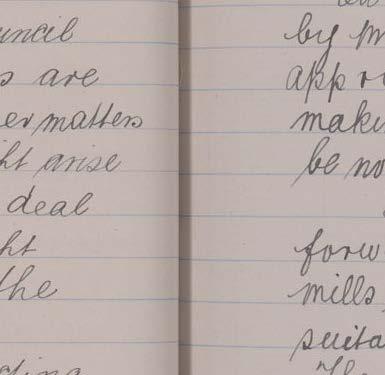 uncil
s are
er matters
ht arise
deal
ht
the
by m
app r
maki
be no
forw
mills,
suita